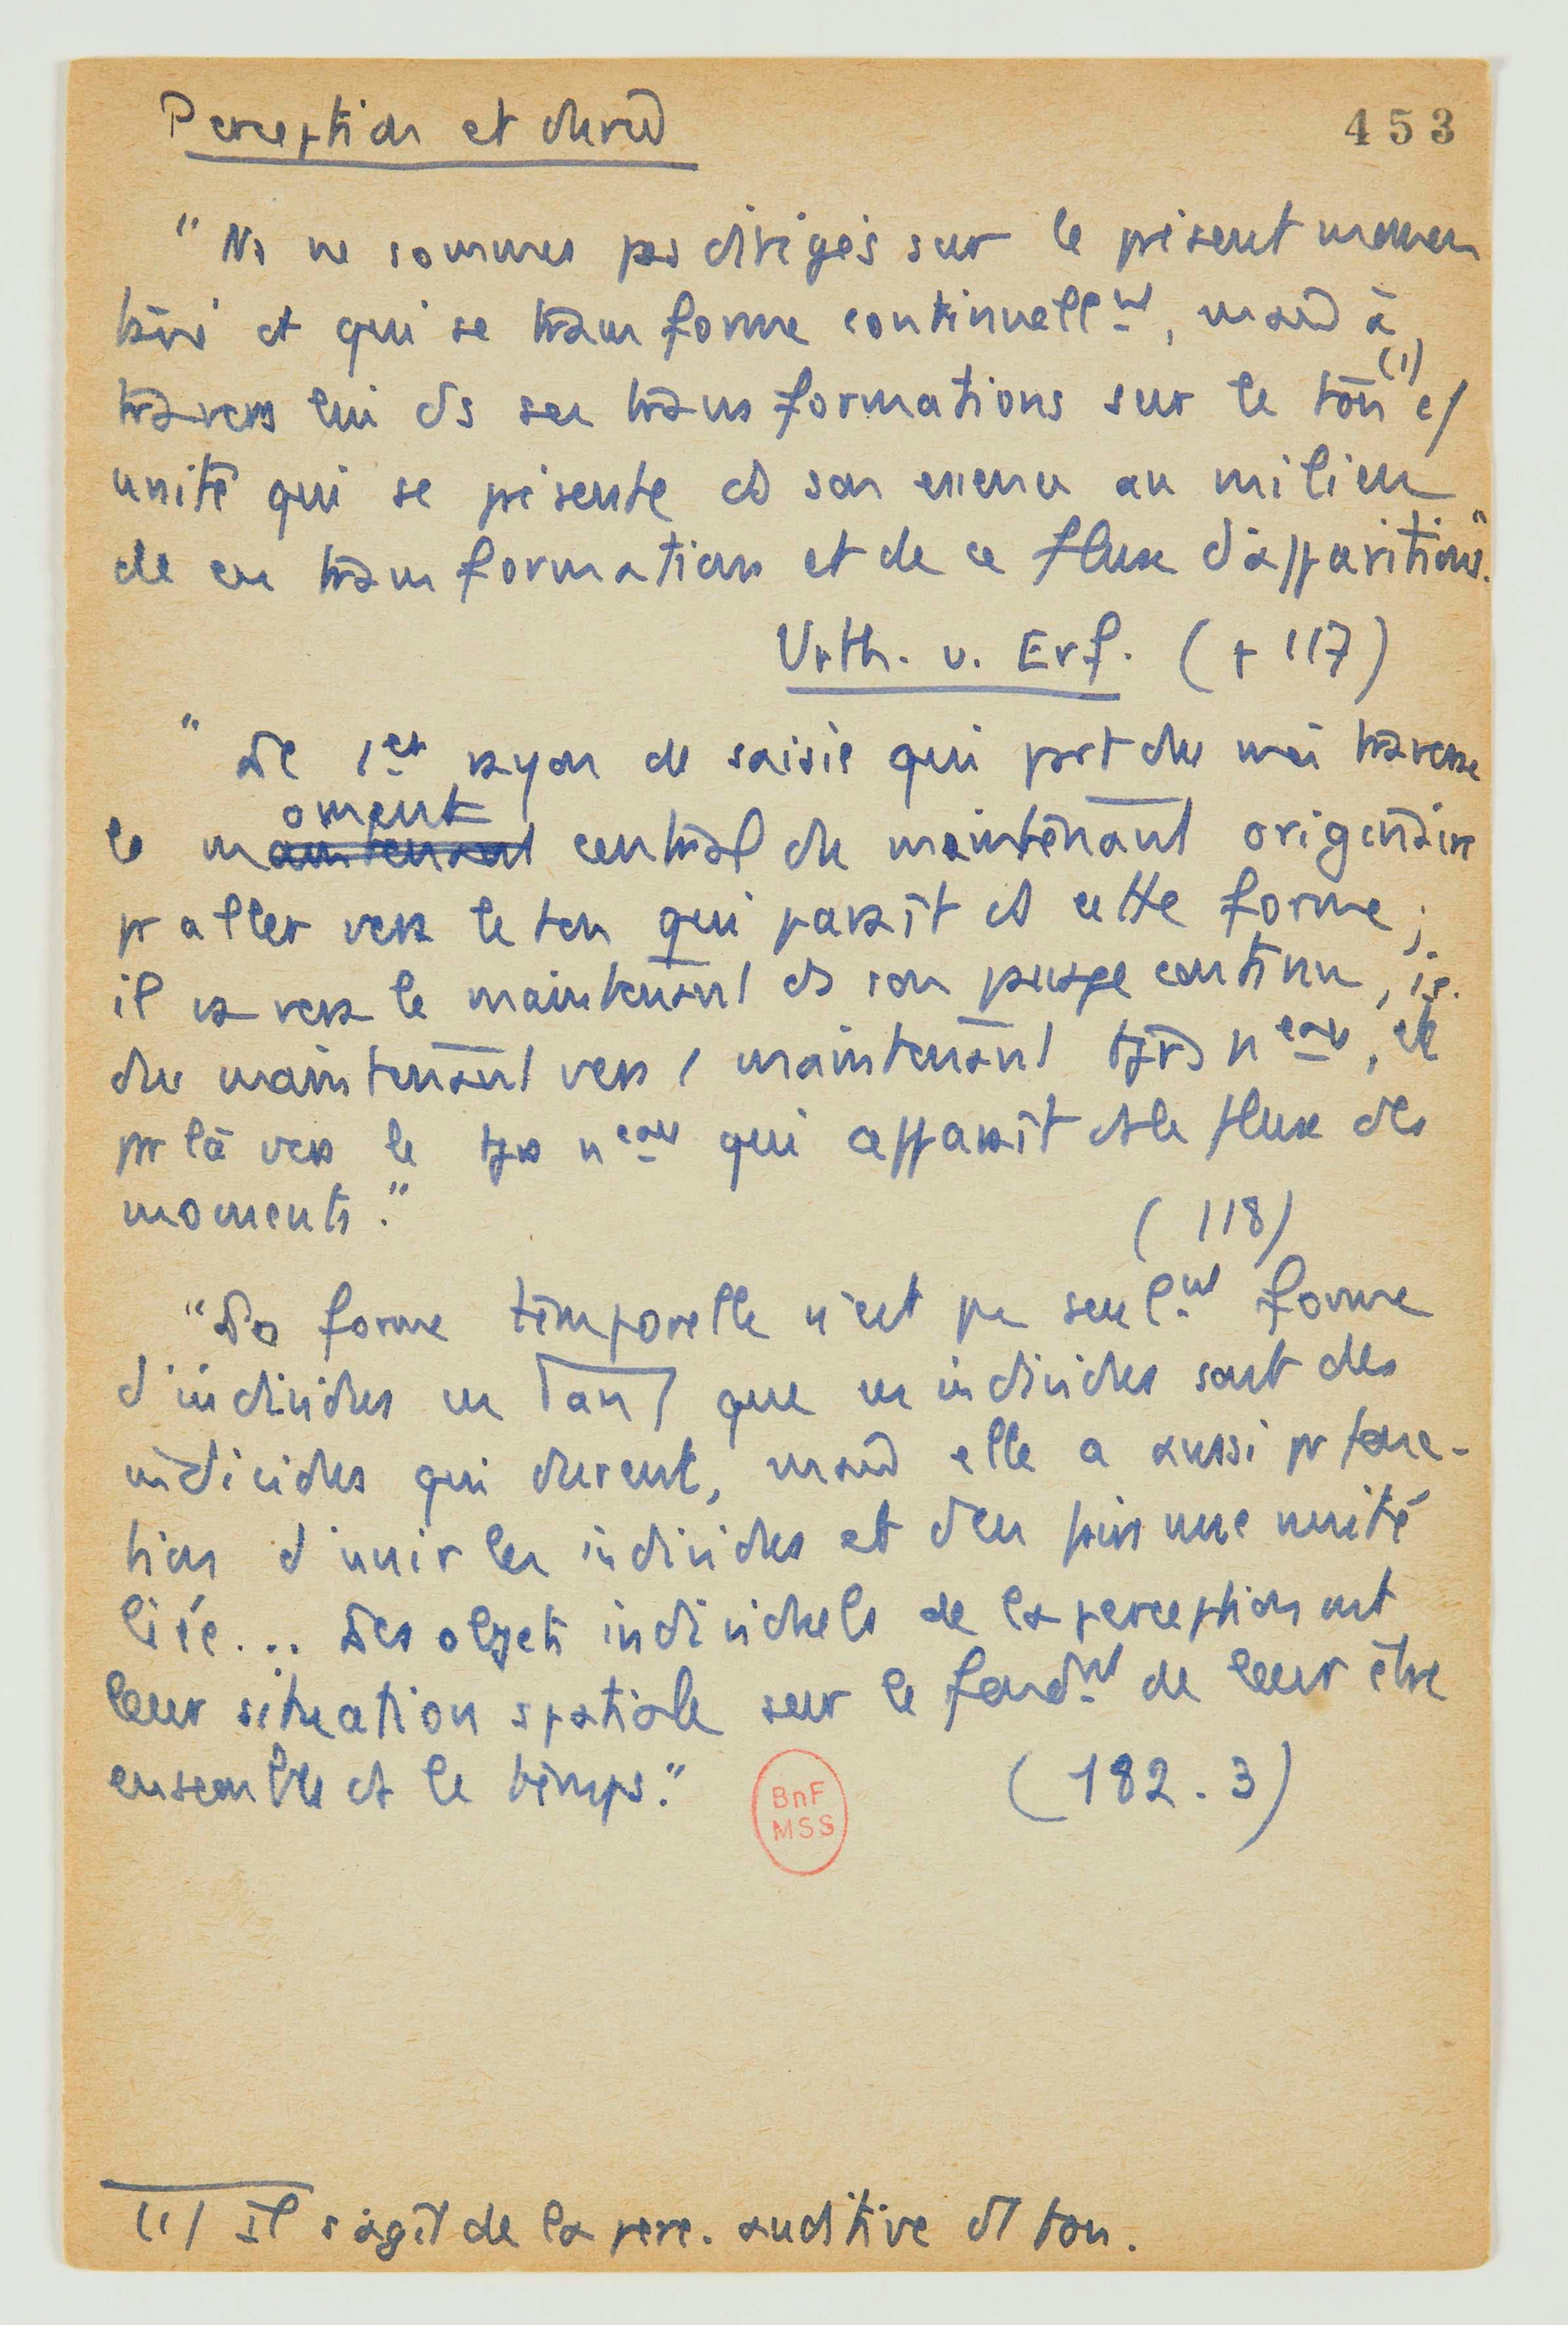 Perception et durée
453
"Ns ne sommes pas dirigés sur le présent momen
tané et qui se transforme continuellmt, mais à
travers lui ds ses transformations sur le ton (1) c/
unité qui se présente ds son essence au milieu
de ces transformations et de ce flux d'apparitions."
Urth. u. Erf. (p 117)
"Le 1er rayon de saisie qui part du moi traverse
le maintenant oment central du maintenant originaire
pr aller vers le ton qui paraît ds cette forme ;
il va vers le maintenant ds son passage continu, i.e.
du maintenant vers 1 maintenant tjrs neau, et
pr là vers le tjrs neau qui apparaît ds le flux des
moments."
(118)
"La forme temporelle n'est pas seulmt forme
d'individus en tant que ces individus sont des
individus qui durent, mais elle a aussi pr fonc-
tion d'unir les individus et d'en faire une unité
liée... Les objets individuels de la perception ont
leur situation spatiale sur le fondmt de leur être
ensemble ds le temps."
(182.3)
BnF
MSS
(1) Il s'agit de la perc. auditive d'1 ton.